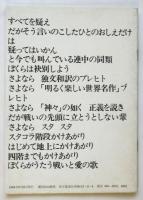 すべてを疑え
だがそう言いのこしたひとのおしえだけ
は
疑ってはいかん
と今でも叫んでいる連中の同類
ぼくらは袂別しよう
さよなら 独文和訳のブレヒト
さよなら 「明るく楽しい世界名作」ブ
レヒト
さよなら 「神々」の如く 正義を説き
だが戦いの先頭に立とうとしない輩
さよなら スタ スタ
スタコラ階段かけあがり
はじめて地上にかけあがり
四階までもかけあがり
ぼくらがうたう戦いと愛の歌